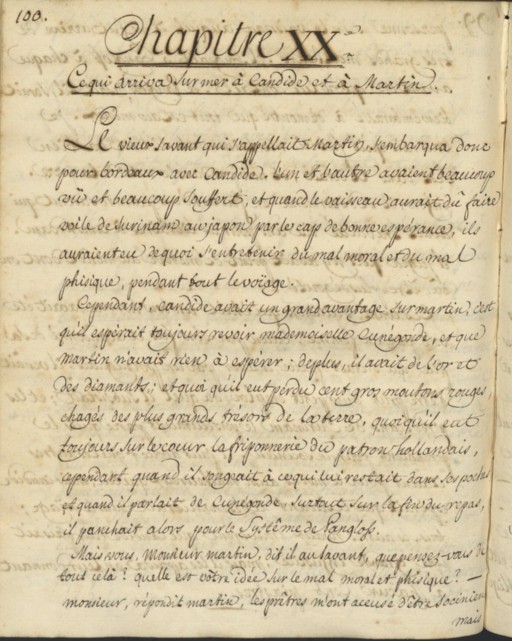 100.
Chapitre XX.e
Ce qui arriva sur mer à Candide et à Martin.
Le vieux savant qui s'appellait Martin, s'embarqua donc
pour bordeaux avec Candide. l'un et l'autre avaient beaucoup
vû et beaucoup souffert; et quand le vaisseau aurait dû faire
voile de Surinam au japon par le cap de bonne espérance, ils
auraient eu de quoi s'entretenir du mal moral et du mal
phisique, pendant tout le voïage.
Cependant, candide avait un grand avantage sur martin, c'est
qu'il espérait toujours revoir mademoiselle Cunégonde, et que
Martin n'avait rien à espérer; de plus, il avait de l'or et
des diamants; et quoi qu'il eut perdu cent gros moutons rouges
chagés des plus grands trésors de la terre, quoiqu'il eut
toujours sur le coeur la friponnerie du patron hollandais,
cependant quand il songeait à ce qui lui restait dans ses poches
et quand il parlait de Cunégonde, surtout sur la fin du repas,
il panchait alors pour le Systême de Pangloss.
Mais vous, Monsieur martin, dit il au savant, que pensez-vous de
tout celà? quelle est vôtre idée sur le mal moral et phisique? —
monsieur, répondit martin, les prêtres m'ont accusé d'être socinien
mais